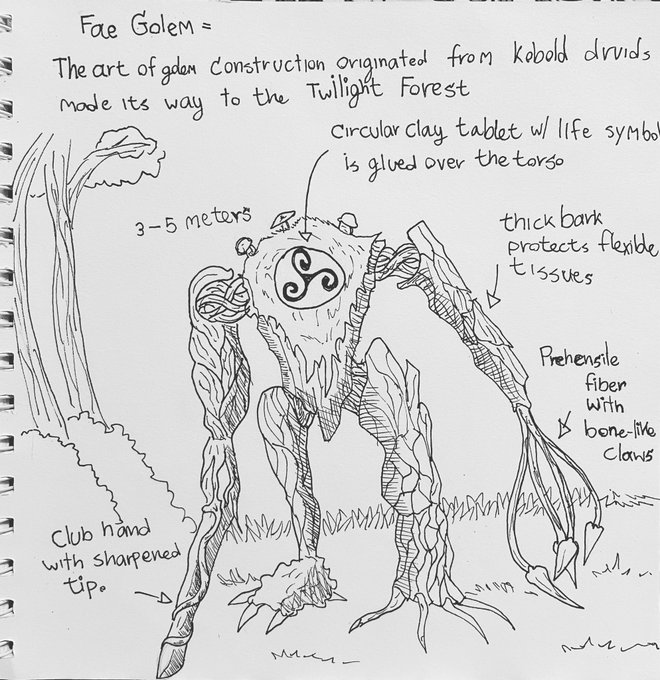 Fae Golem =
The art of golem construction originated from kobold druids
made its way to the Twilight Forest
Circular clay tablet w/ life symbol
is glued over the torso
3-5 meters
thick bark
protects flexible
tissues
Prehensile
fiber
with
bone-like
claws
Club hand
with sharpened
tip.